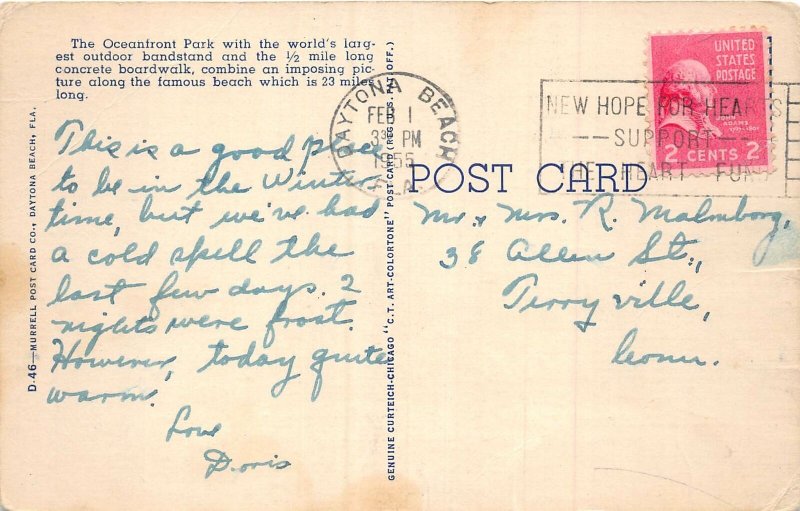 The Oceanfront Park with the world's larg-
est outdoor bandstand and the ½ mile long
concrete boardwalk, combine an imposing pic-
ture along the famous beach which is 23 miles
long.
This is a good place
to be in the Winter
time, but we've had
a cold spell the
last few days. 2
nights were frost.
However, today quite
warm.
Love
Doris
D-46—MURRELL POST CARD CO., DAYTONA BEACH, FLA.
GENUINE CURTEICH-CHICAGO "C.T. ART-COLORTONE" POST CARD (REG. U.S. PAT. OFF.)
DAYTONA BEACH
FEB 1
PM
1955
FLA
POST CARD
NEW HOPE FOR HEARTS
—SUPPORT—
THE HEART FUND
UNITED
STATES
POSTAGE
JOHN
ADAMS
2 CENTS 2
Mr. & Mrs. R. Malmborg,
38 Allen St.,
Terryville,
Conn.